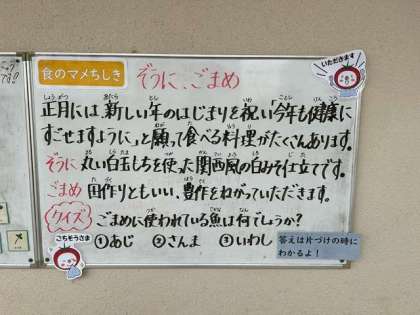 食のマメちしき
ぞうに、ごまめ
いただきます
正月には、新しい年のはじまりを祝い「今年も健康に
すごせますように」と願って食べる料理がたくさんあります。
ぞうに 丸い白玉もちを使った関西風の白みそ仕立てです。
ごまめ 田作りともいい、豊作をねがっていただきます。
クイズ ごまめに使われている魚は何でしょうか?
①あじ ②さんま ③いわし
ごちそうさま
答えは片づけの時に
わかるよ!